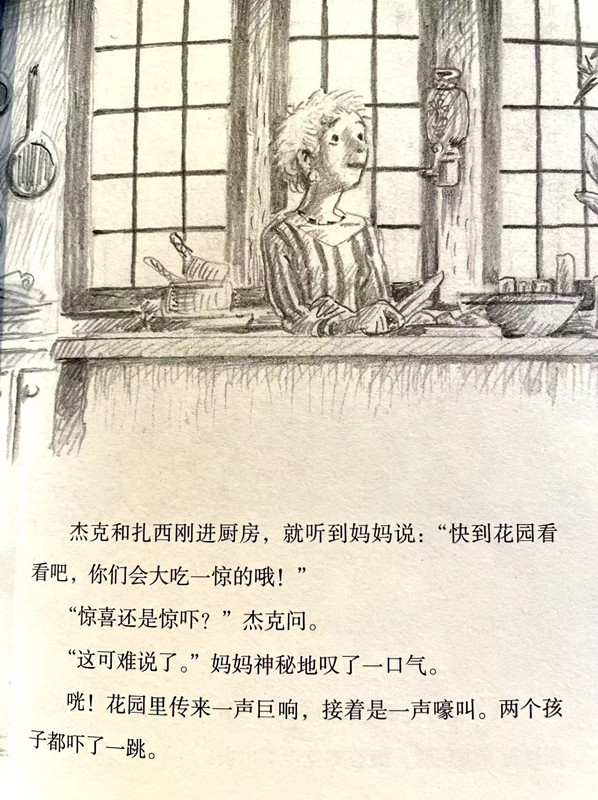 杰克和扎西刚进厨房，就听到妈妈说：“快到花园看
看吧，你们会大吃一惊的哦！”
“惊喜还是惊吓？”杰克问。
“这可难说了。”妈妈神秘地叹了一口气。
咣！花园里传来一声巨响，接着是一声嚎叫。两个孩
子都吓了一跳。